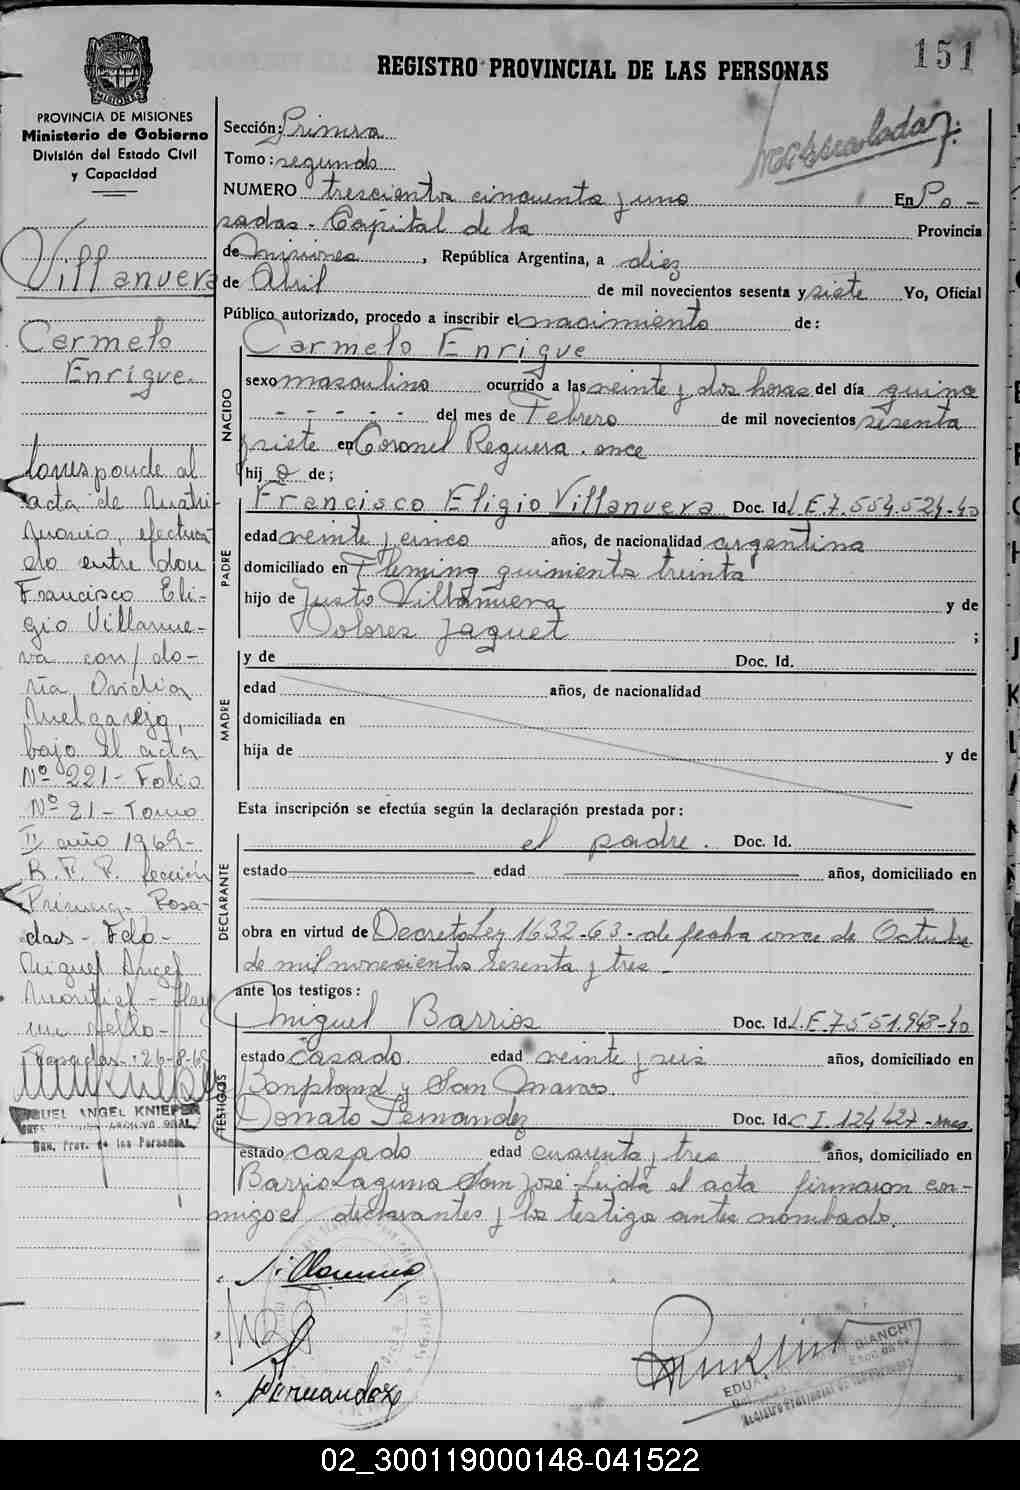 151
REGISTRO PROVINCIAL DE LAS PERSONAS
PROVINCIA DE MISIONES
Ministerio de Gobierno
División del Estado Civil
y Capacidad
Sección: Primera
Tomo: segundo
NUMERO trescientos cincuenta y uno En Po-
sadas - Capital de la Provincia
de Misiones, República Argentina, a diez
de Abril de mil novecientos sesenta y siete Yo, Oficial
Público autorizado, procedo a inscribir el nacimiento de:
NACIDO
Carmelo Enrique
sexo masculino ocurrido a las veinte y dos horas del día quince
- - - - - del mes de Febrero de mil novecientos sesenta
y siete en Coronel Reguera once
hijo de;
PADRE
Francisco Eligio Villanueva Doc. Id. L.E.7.554.524-
edad veinte y cinco años, de nacionalidad argentina
domiciliado en Fleming quinientos treinta
hijo de Justo Villanueva y de
Dolores Jaquet ;
MADRE
y de Doc. Id.
edad años, de nacionalidad
domiciliada en
hija de y de
Esta inscripción se efectúa según la declaración prestada por:
DECLARANTE
el padre. Doc. Id.
estado edad años, domiciliado en
obra en virtud de Decreto Ley 1632-63- de fecha once de Octubre
de mil novecientos sesenta y tres -
ante los testigos:
TESTIGOS
Miguel Barrios Doc. Id. L.E.7.551.948-
estado casado. edad veinte y seis años, domiciliado en
Bonpland y San Marcos.
Donato Fernandez Doc. Id. C.I. 124427-
estado casado edad cuarenta y tres años, domiciliado en
Barrio Laguna San José - Leída el acta firmaron con-
migo el declarantes y los testigos antes nombrados.
Villanueva
Fernandez
Villanueva
Carmelo
Enrique
Corresponde al
acta de Matri-
monio, efectua-
do entre don
Francisco Eli-
gio Villanue-
va con do-
ña Ovidia
Melgarejo,
bajo el acta
Nº 221 - Folio
Nº 21 - Tomo
II año 1969-
R. P. P. Sección
Primera - Posa-
das - Fdo -
Miguel Angel
Montiel - Hay
un sello -
Posadas: 26-8-69
MIGUEL ANGEL KNIEPER
ARCHIVO GRAL.
Reg. Prov. de las Personas
BIANCHI
Registro Provincial de las Personas
02_300119000148-041522